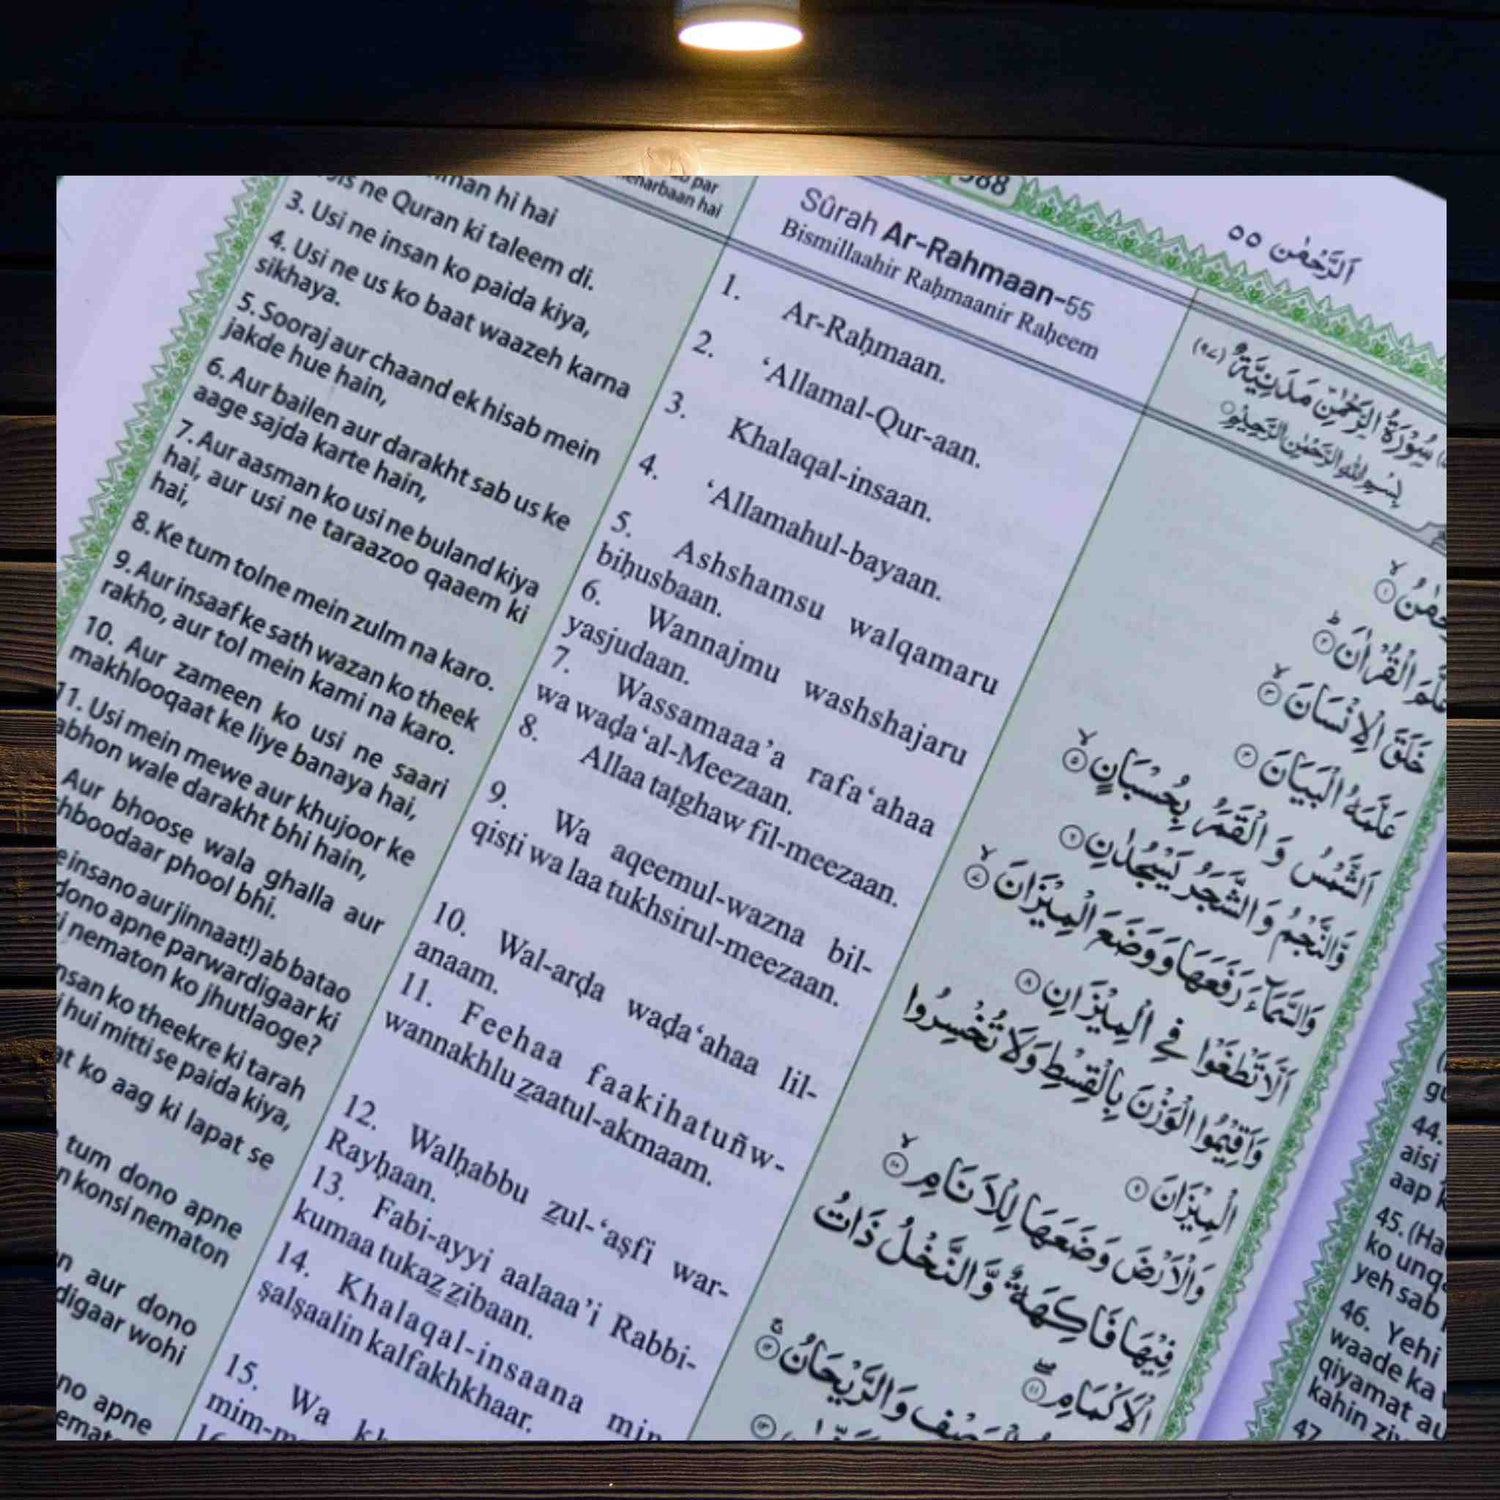 ...man hi hai
...jis ne Quran ki taleem di.
3. Usi ne insan ko paida kiya,
4. Usi ne us ko baat waazeh karna
sikhaya.
5. Sooraj aur chaand ek hisab mein
jakde hue hain,
6. Aur bailen aur darakht sab us ke
aage sajda karte hain,
7. Aur aasman ko usi ne buland kiya
hai, aur usi ne taraazoo qaaem ki
hai,
8. Ke tum tolne mein zulm na karo.
9. Aur insaaf ke sath wazan ko theek
rakho, aur tol mein kami na karo.
10. Aur zameen ko usi ne saari
makhlooqaat ke liye banaya hai,
11. Usi mein mewe aur khujoor ke
wale darakht bhi hain,
Aur bhoose wala ghalla aur
phool bhi.
insano aur jinnaat!) ab batao
dono apne parwardigaar ki
nematon ko jhutlaoge?
ko theekre ki tarah
hui mitti se paida kiya,
ko aag ki lapat se
tum dono apne
konsi nematon
aur dono
wohi
apne
par
meharbaan hai
Sûrah Ar-Rahmaan-55
Bismillaahir Raḥmaanir Raḥeem
1. Ar-Raḥmaan.
2. ‘Allamal-Qur-aan.
3. Khalaqal-insaan.
4. ‘Allamahul-bayaan.
5. Ashshamsu walqamaru
biḥusbaan.
6. Wannajmu washshajaru
yasjudaan.
7. Wassamaaa’a rafa‘ahaa
wa waḍa‘al-Meezaan.
8. Allaa taṭghaw fil-meezaan.
9. Wa aqeemul-wazna bil-
qisṭi wa laa tukhsirul-meezaan.
10. Wal-arḍa waḍa‘ahaa lil-
anaam.
11. Feehaa faakihatuñw-
wannakhlu z̲aatul-akmaam.
12. Walḥabbu z̲ul-‘aṣfi war-
Rayḥaan.
13. Fabi-ayyi aalaaa’i Rabbi-
kumaa tukaz̲z̲ibaan.
14. Khalaqal-insaana min
ṣalṣaalin kalfakhkhaar.
15. Wa
16
اَلرَّحْمٰن ٥٥
سُوْرَةُ الرَّحْمٰنِ مَدَنِيَّةٌ (٩٧)
بِسْمِ اللّٰهِ الرَّحْمٰنِ الرَّحِيْمِ
الْقُرْاٰنَ ٢
خَلَقَ الْاِنْسَانَ ٣
عَلَّمَهُ الْبَيَانَ ٤
اَلشَّمْسُ وَ الْقَمَرُ بِحُسْبَانٍ ٥
وَّالنَّجْمُ وَ الشَّجَرُ يَسْجُدٰنِ ٦
وَالسَّمَآءَ رَفَعَهَا وَ وَضَعَ الْمِيْزَانَ ٧
اَلَّا تَطْغَوْا فِي الْمِيْزَانِ ٨
وَاَقِيْمُوا الْوَزْنَ بِالْقِسْطِ وَلَا تُخْسِرُوا
الْمِيْزَانَ ٩
وَالْاَرْضَ وَضَعَهَا لِلْاَنَامِ ١٠
فِيْهَا فَاكِهَةٌ وَّ النَّخْلُ ذَاتُ
الْاَكْمَامِ ١١
وَالرَّيْحَانُ ١٢
44.
aisi
aap
45.
ko
yeh sab
46. Yehi
waade ka
qiyamat
kahin
47